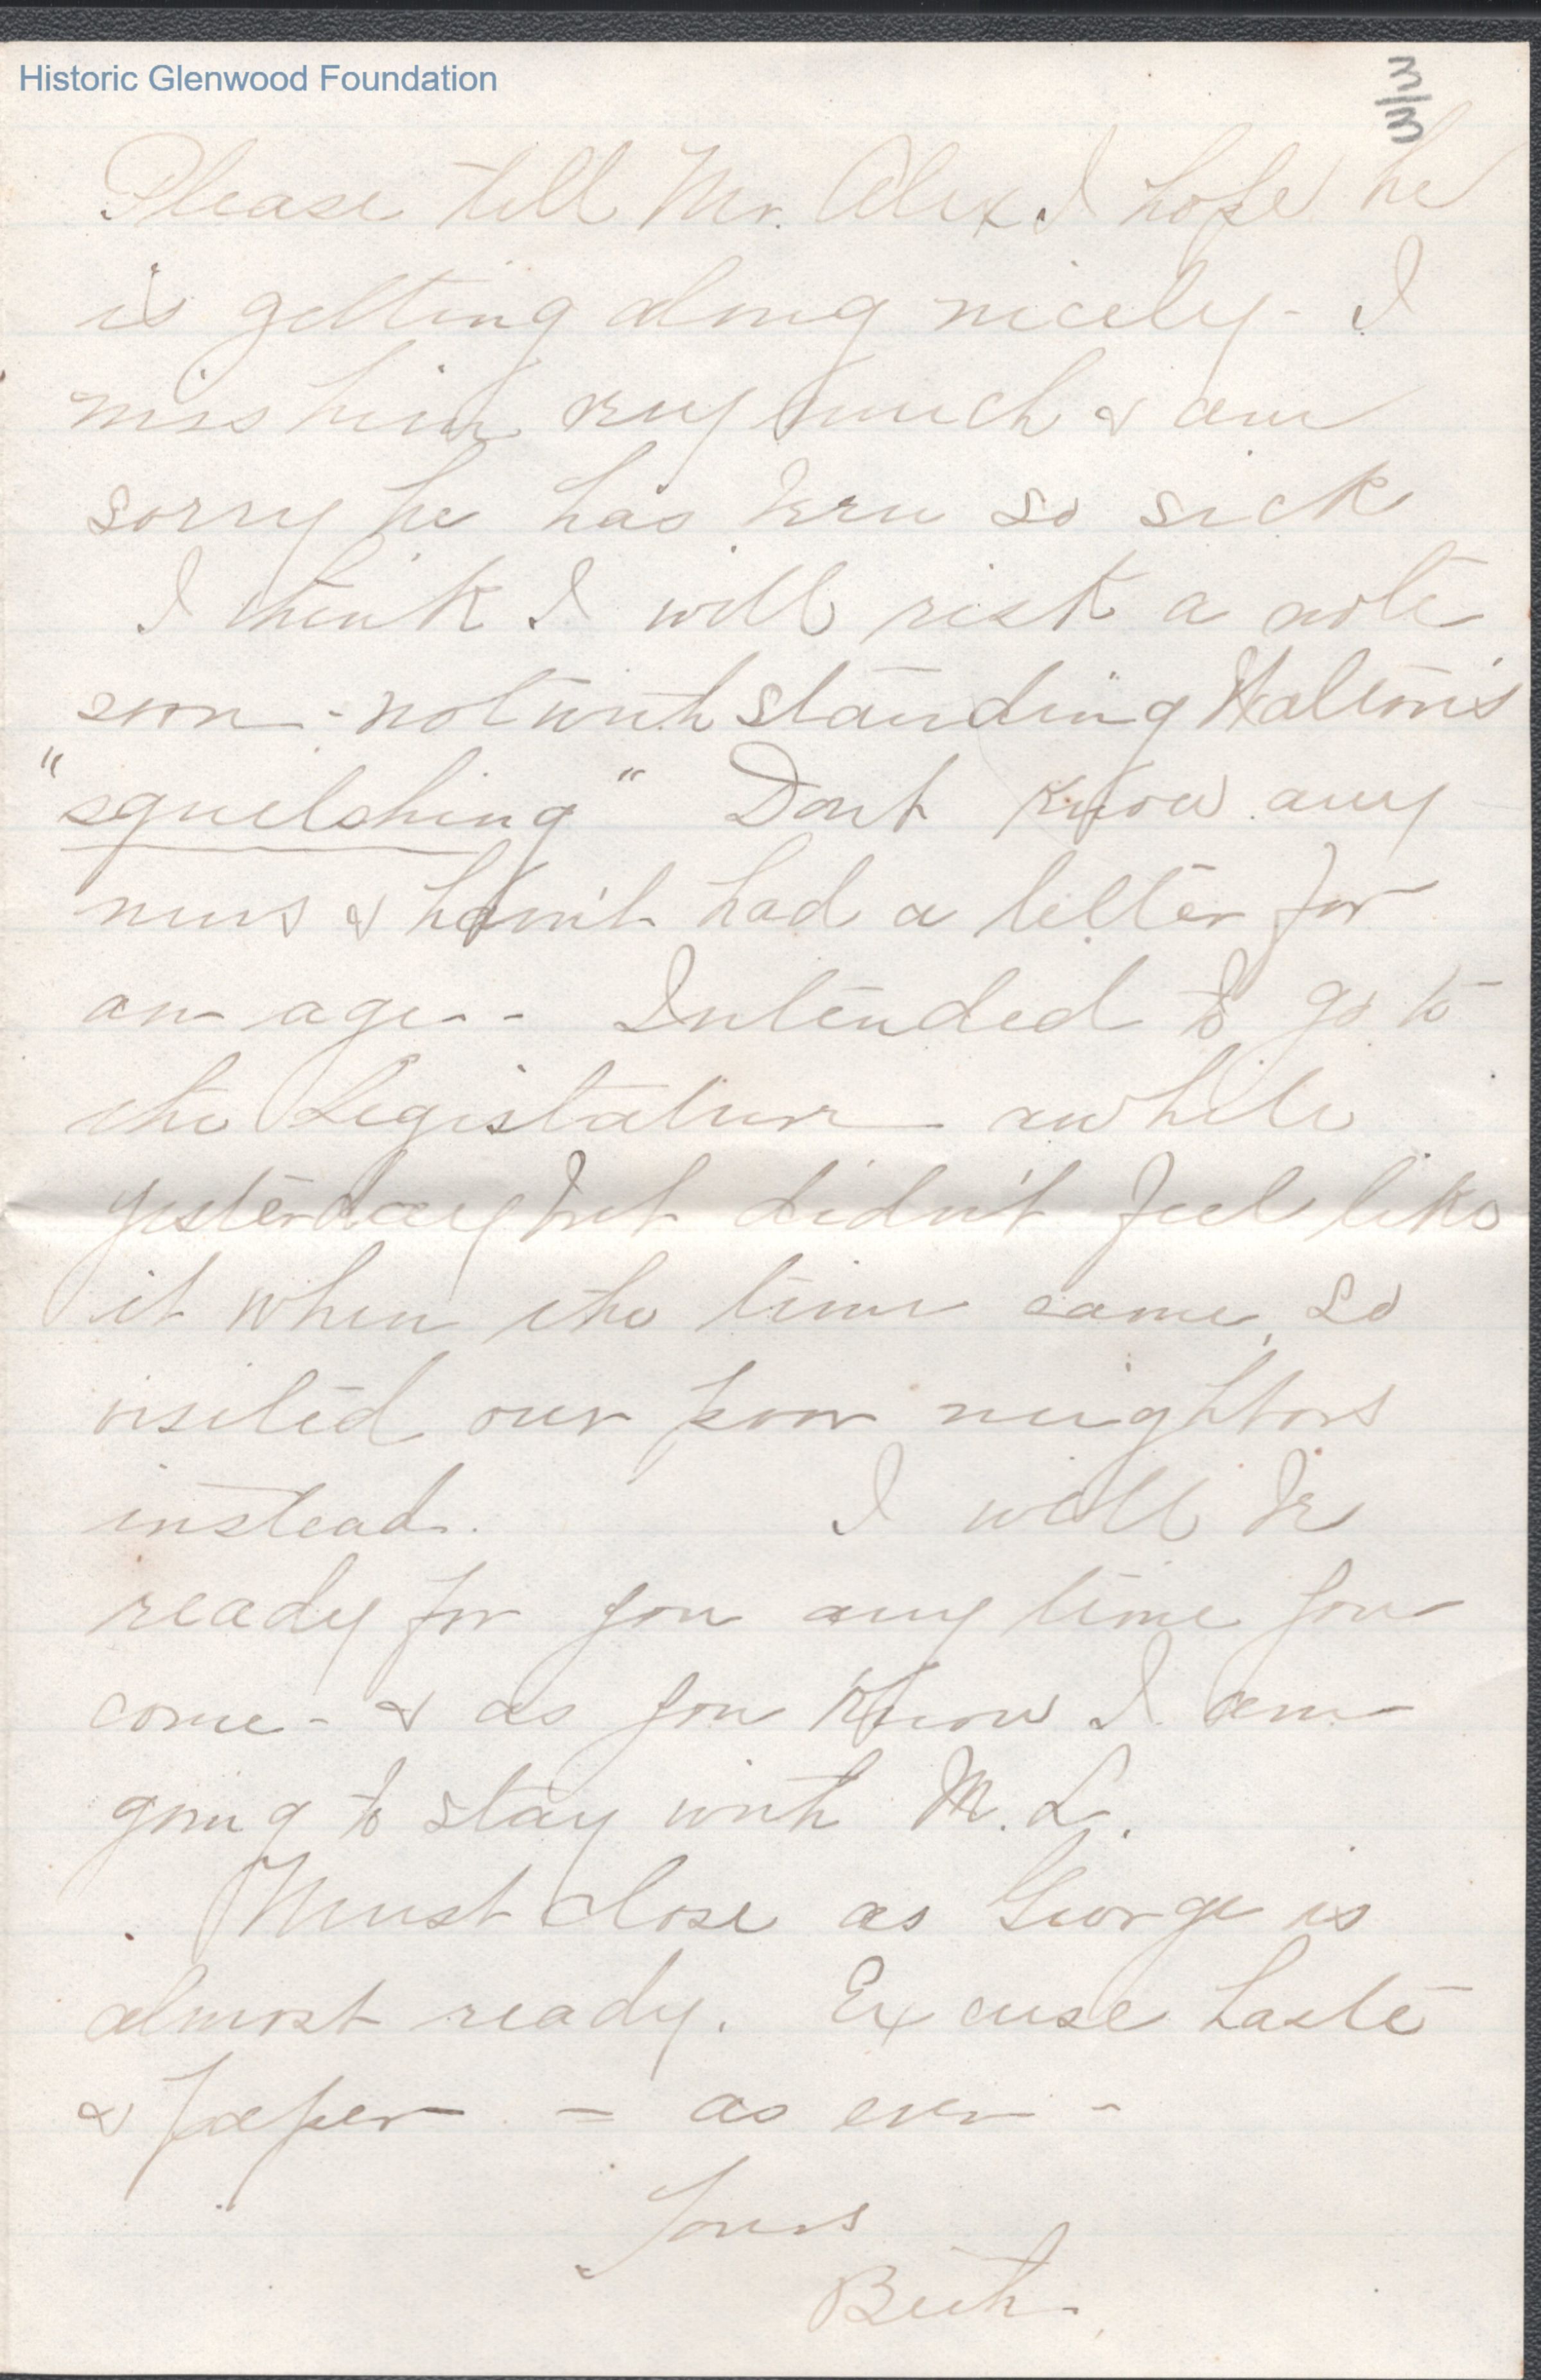 Historic Glenwood Foundation
3/3
Please tell Mr. Alex I hope he
is getting along nicely - I
miss him very much & am
sorry he has been so sick
I think I will risk a note
soon - notwithstanding Walton's
"squelching" Don't know any
news & havn't had a letter for
an age - - Intended to go to
the Legislature awhile
yesterday but didn't feel like
it when the time came, so
visited our poor neighbors
instead. I will be
ready for you any time you
come - & as you know I am
going to stay with M. L.
Must close as George is
almost ready. Excuse haste
& paper - = as ever -
Yours